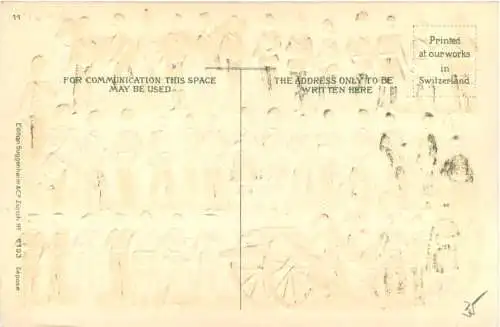 11
FOR COMMUNICATION THIS SPACE
MAY BE USED
THE ADDRESS ONLY TO BE
WRITTEN HERE
Printed
at our works
in
Switzerland
Edition Guggenheim & Co Zürich
Déposé